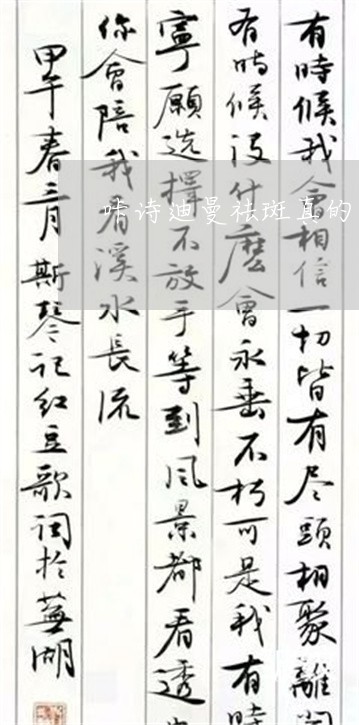 有時候我会相信一切皆有尽頭相聚離
有時候没什麽會永垂不朽可是我有時
寧願选擇不放手等到风景都看透
你會陪我看溪水長流
甲午春三月斯琴记红豆歌词於蕪湖
咔诗迪曼祛斑真的